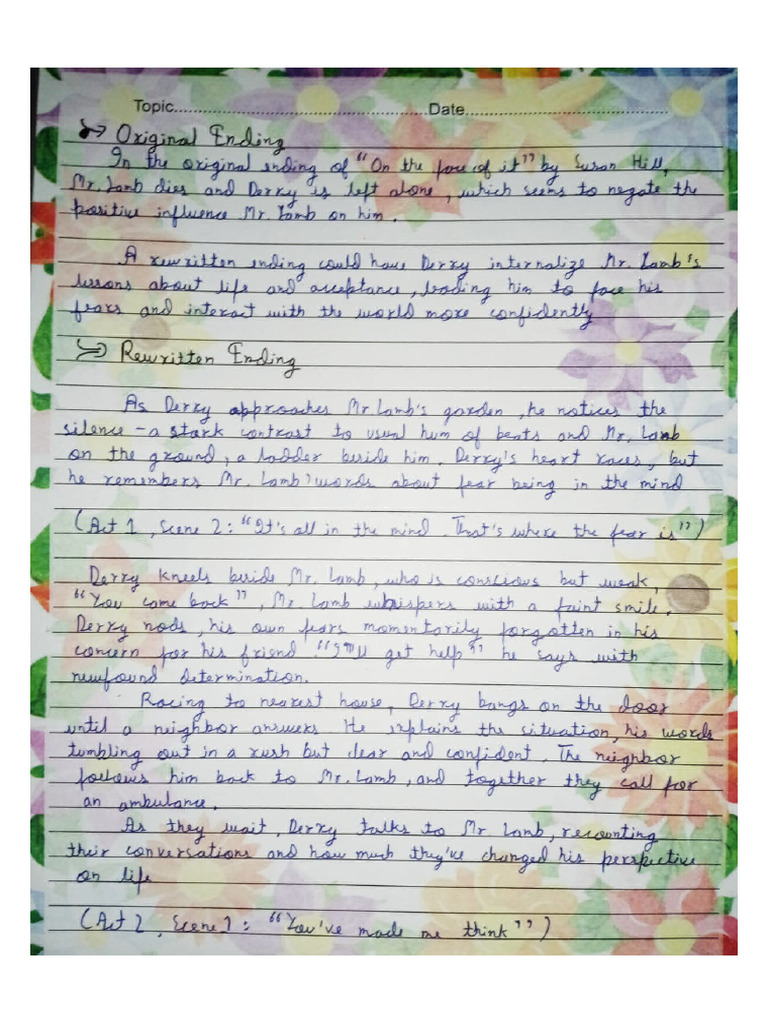 Topic............................................................Date................................................
Original Ending
In the original ending of "On the face of it" by Susan Hill,
Mr. Lamb dies and Derry is left alone, which seems to negate the
positive influence Mr. Lamb on him.
A rewritten ending could have Derry internalize Mr. Lamb's
lessons about life and acceptance, leading him to face his
fears and interact with the world more confidently
Rewritten Ending
As Derry approaches Mr. Lamb's garden, he notices the
silence - a stark contrast to usual hum of beats and Mr. Lamb
on the ground, a ladder beside him. Derry's heart races, but
he remembers Mr. Lamb's words about fear being in the mind
(Act 1, Scene 2: "It's all in the mind. That's where the fear is")
Derry kneels beside Mr. Lamb, who is conscious but weak,
"You came back", Mr. Lamb whispers with a faint smile.
Derry nods, his own fears momentarily forgotten in his
concern for his friend. "I'll get help" he says with
newfound determination.
Racing to nearest house, Derry bangs on the door
until a neighbor answers. He explains the situation, his words
tumbling out in a rush but clear and confident. The neighbor
follows him back to Mr. Lamb, and together they call for
an ambulance.
As they wait, Derry talks to Mr. Lamb, recounting
their conversations and how much they've changed his perspective
on life
(Act 2, Scene 1: "You've made me think")